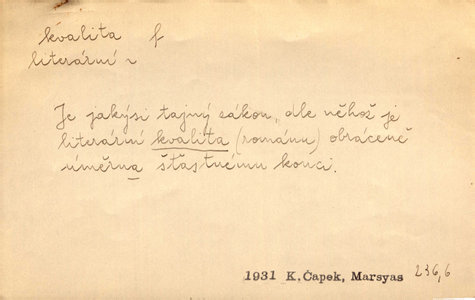 kvalita f
literární ~
Je jakýsi tajný zákon, dle něhož je
literární kvalita (románu) obráceně
úměrna šťastnému konci.
1931 K. Čapek, Marsyas 236,6